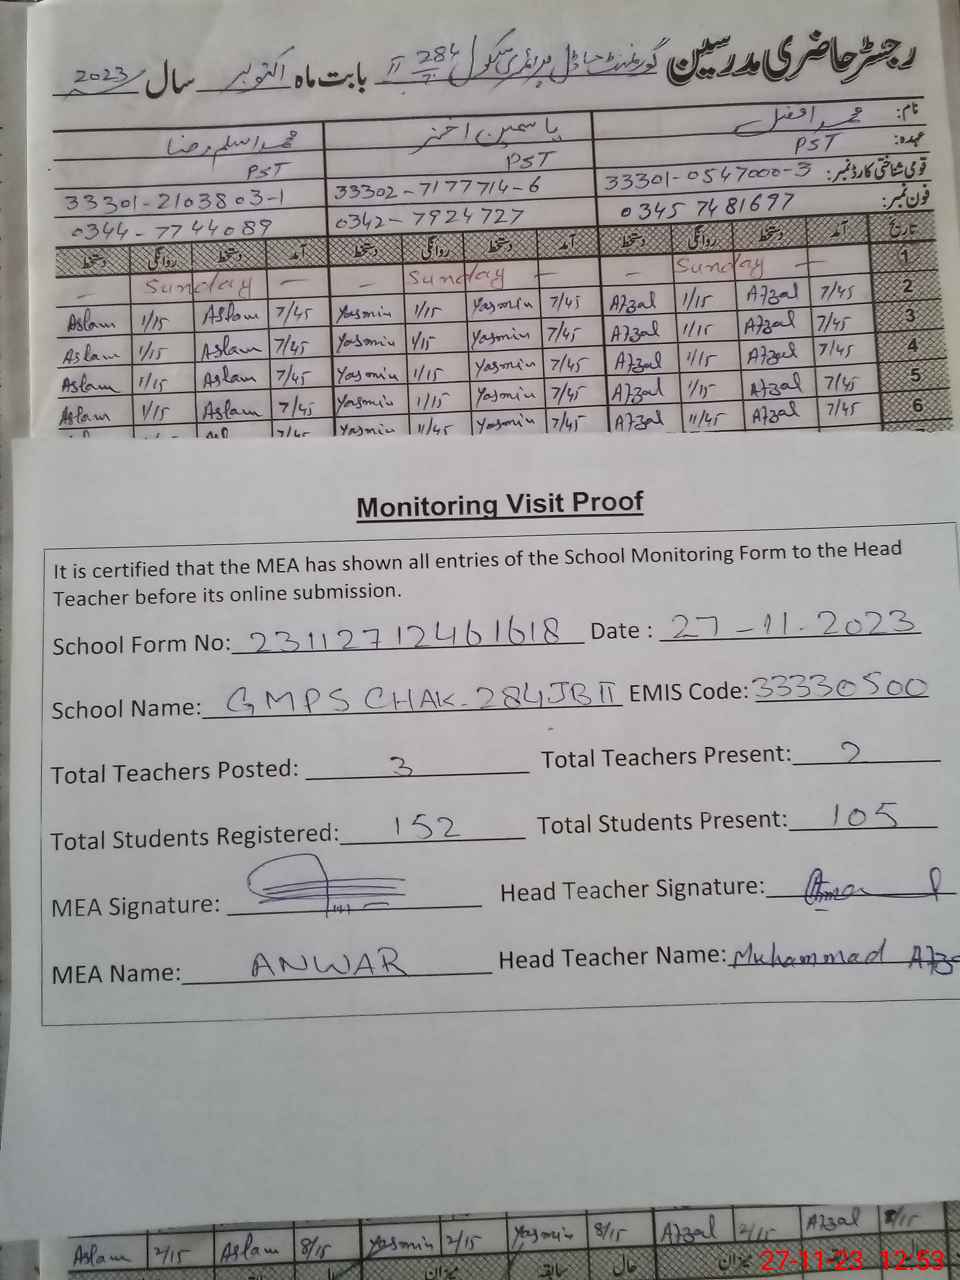 رجسٹر حاضری مدرسین گورنمنٹ ماڈل پرائمری سکول 284 II بابت ماہ اکتوبر سال 2023
نام: محمد افضل یاسمین اختر محمد اسلم رضا
عہدہ: PST PST PST
قومی شناختی کارڈ نمبر: 33301-0547000-3 33302-7177714-6 33301-2103803-1
فون نمبر: 0345 7481697 0342-7924727 0344-7744089
تاریخ آمد دستخط روانگی دستخط آمد دستخط روانگی دستخط آمد دستخط روانگی دستخط
1 — Sunday — — Sunday — — Sunday —
Aslam 1/15 Aslam 7/45 Yasmin 1/15 Yasmin 7/45 Afzal 1/15 Afzal 7/45 2
Aslam 1/15 Aslam 7/45 Yasmin 1/15 Yasmin 7/45 Afzal 1/15 Afzal 7/45 3
Aslam 1/15 Aslam 7/45 Yasmin 1/15 Yasmin 7/45 Afzal 1/15 Afzal 7/45 4
Aslam 1/15 Aslam 7/45 Yasmin 1/15 Yasmin 7/45 Afzal 1/15 Afzal 7/45 5
7/45 Yasmin 11/45 Yasmin 7/45 Afzal 11/45 Afzal 7/45 6
Monitoring Visit Proof
It is certified that the MEA has shown all entries of the School Monitoring Form to the Head
Teacher before its online submission.
School Form No: 23112712461618 Date : 27-11-2023
School Name: GMPS CHAK-284JB II EMIS Code: 33330500
Total Teachers Posted: 3 Total Teachers Present: 2
Total Students Registered: 152 Total Students Present: 105
MEA Signature: Head Teacher Signature:
MEA Name: ANWAR Head Teacher Name: Muhammad Afza
Aslam 2/15 Aslam 8/15 Yasmin 2/15 Yasmin 8/15 Afzal 2/15 Afzal 8/15
میزان سابقہ حال میزان
27-11-23 12:53